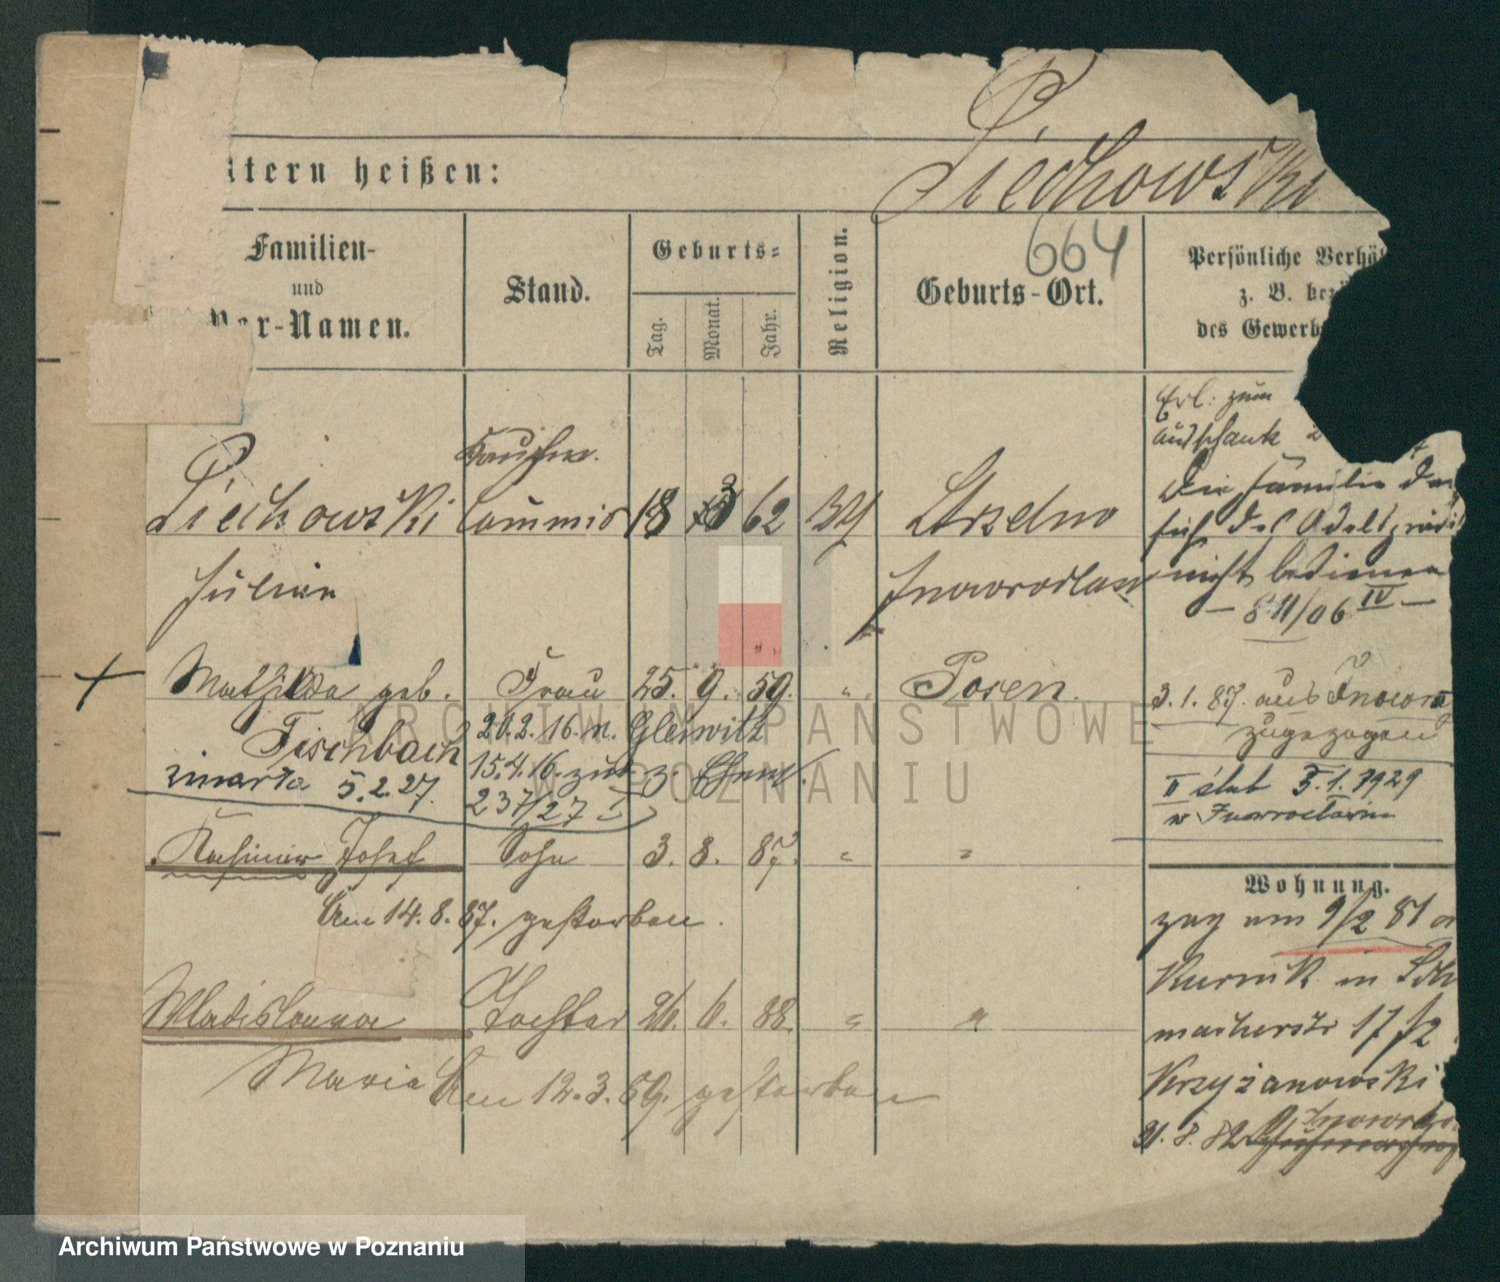 ltern heißen:
Ciechowski
664
Familien-
und
Vor-Namen.
Stand.
Geburts-
Tag.
Monat.
Jahr.
Religion.
Geburts-Ort.
Persönliche Verhäl
z. B. bez
des Gewerb
Erl: zum
Ausschank
Kaufm.
Ciechowski Commis 18 3 62 Strzelno
Julian Inowrocław
Die Familie da
sich des Adelsprädi
nicht bedienen
— 8.11/06 IV —
Mathilda geb. Frau 25. 9. 59. " Posen.
Fischbach 20.2.16 n. Gleiwitz
15.4.16. zur. v.
zmarła 5.2.27. 237/27 I
3.1.87. aus Inowra
zugezogen
II 3.1.1929
w Inowrocławiu
Kasimir Josef Sohn 3. 8. 87. " "
Am 14.8.87. gestorben.
Wohnung.
zog am 9/2 81
Kurnik in Sch
macherstr 17 f2
Krzyżanowski
Wladislawa Tochter 26. 6. 88. " "
Maria Am 12.3.89. gestorben
31.8.82 Inowra
Archiwum Państwowe w Poznaniu
ARCHIWUM PAŃSTWOWE
W POZNANIU